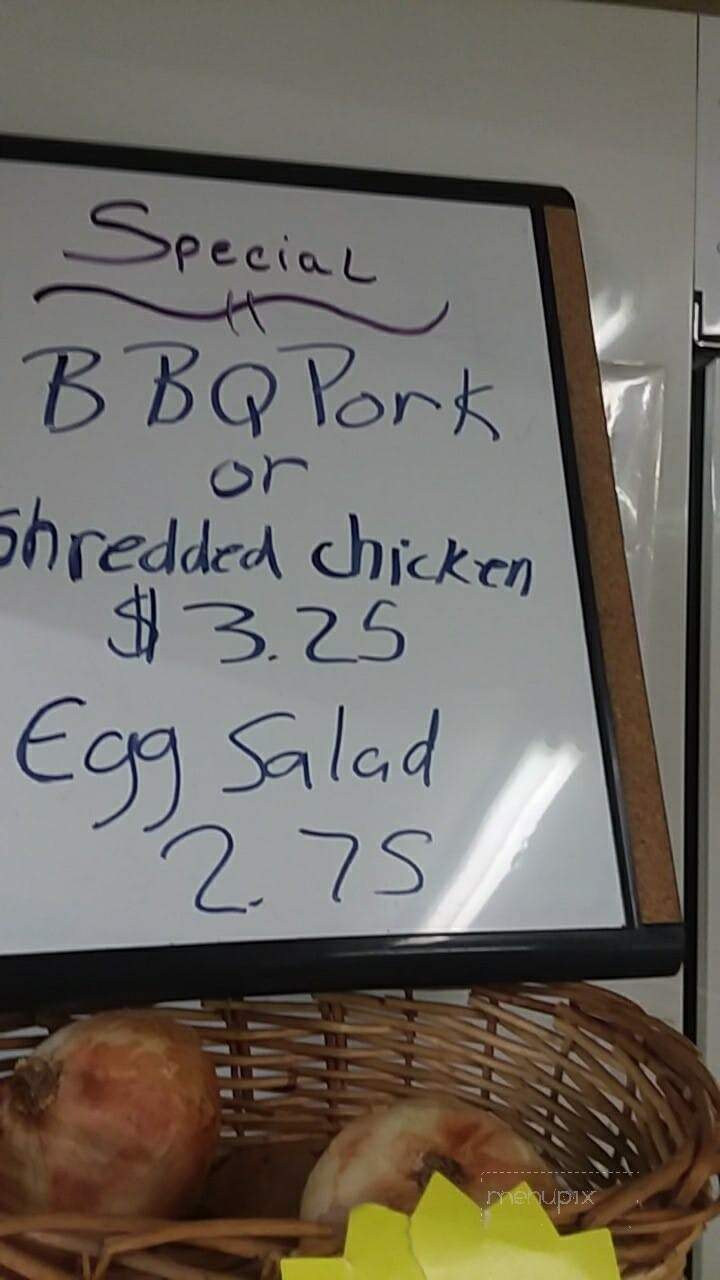 Special
BBQ Pork
or
Shredded chicken
$3.25
Egg Salad
2.75
menupix